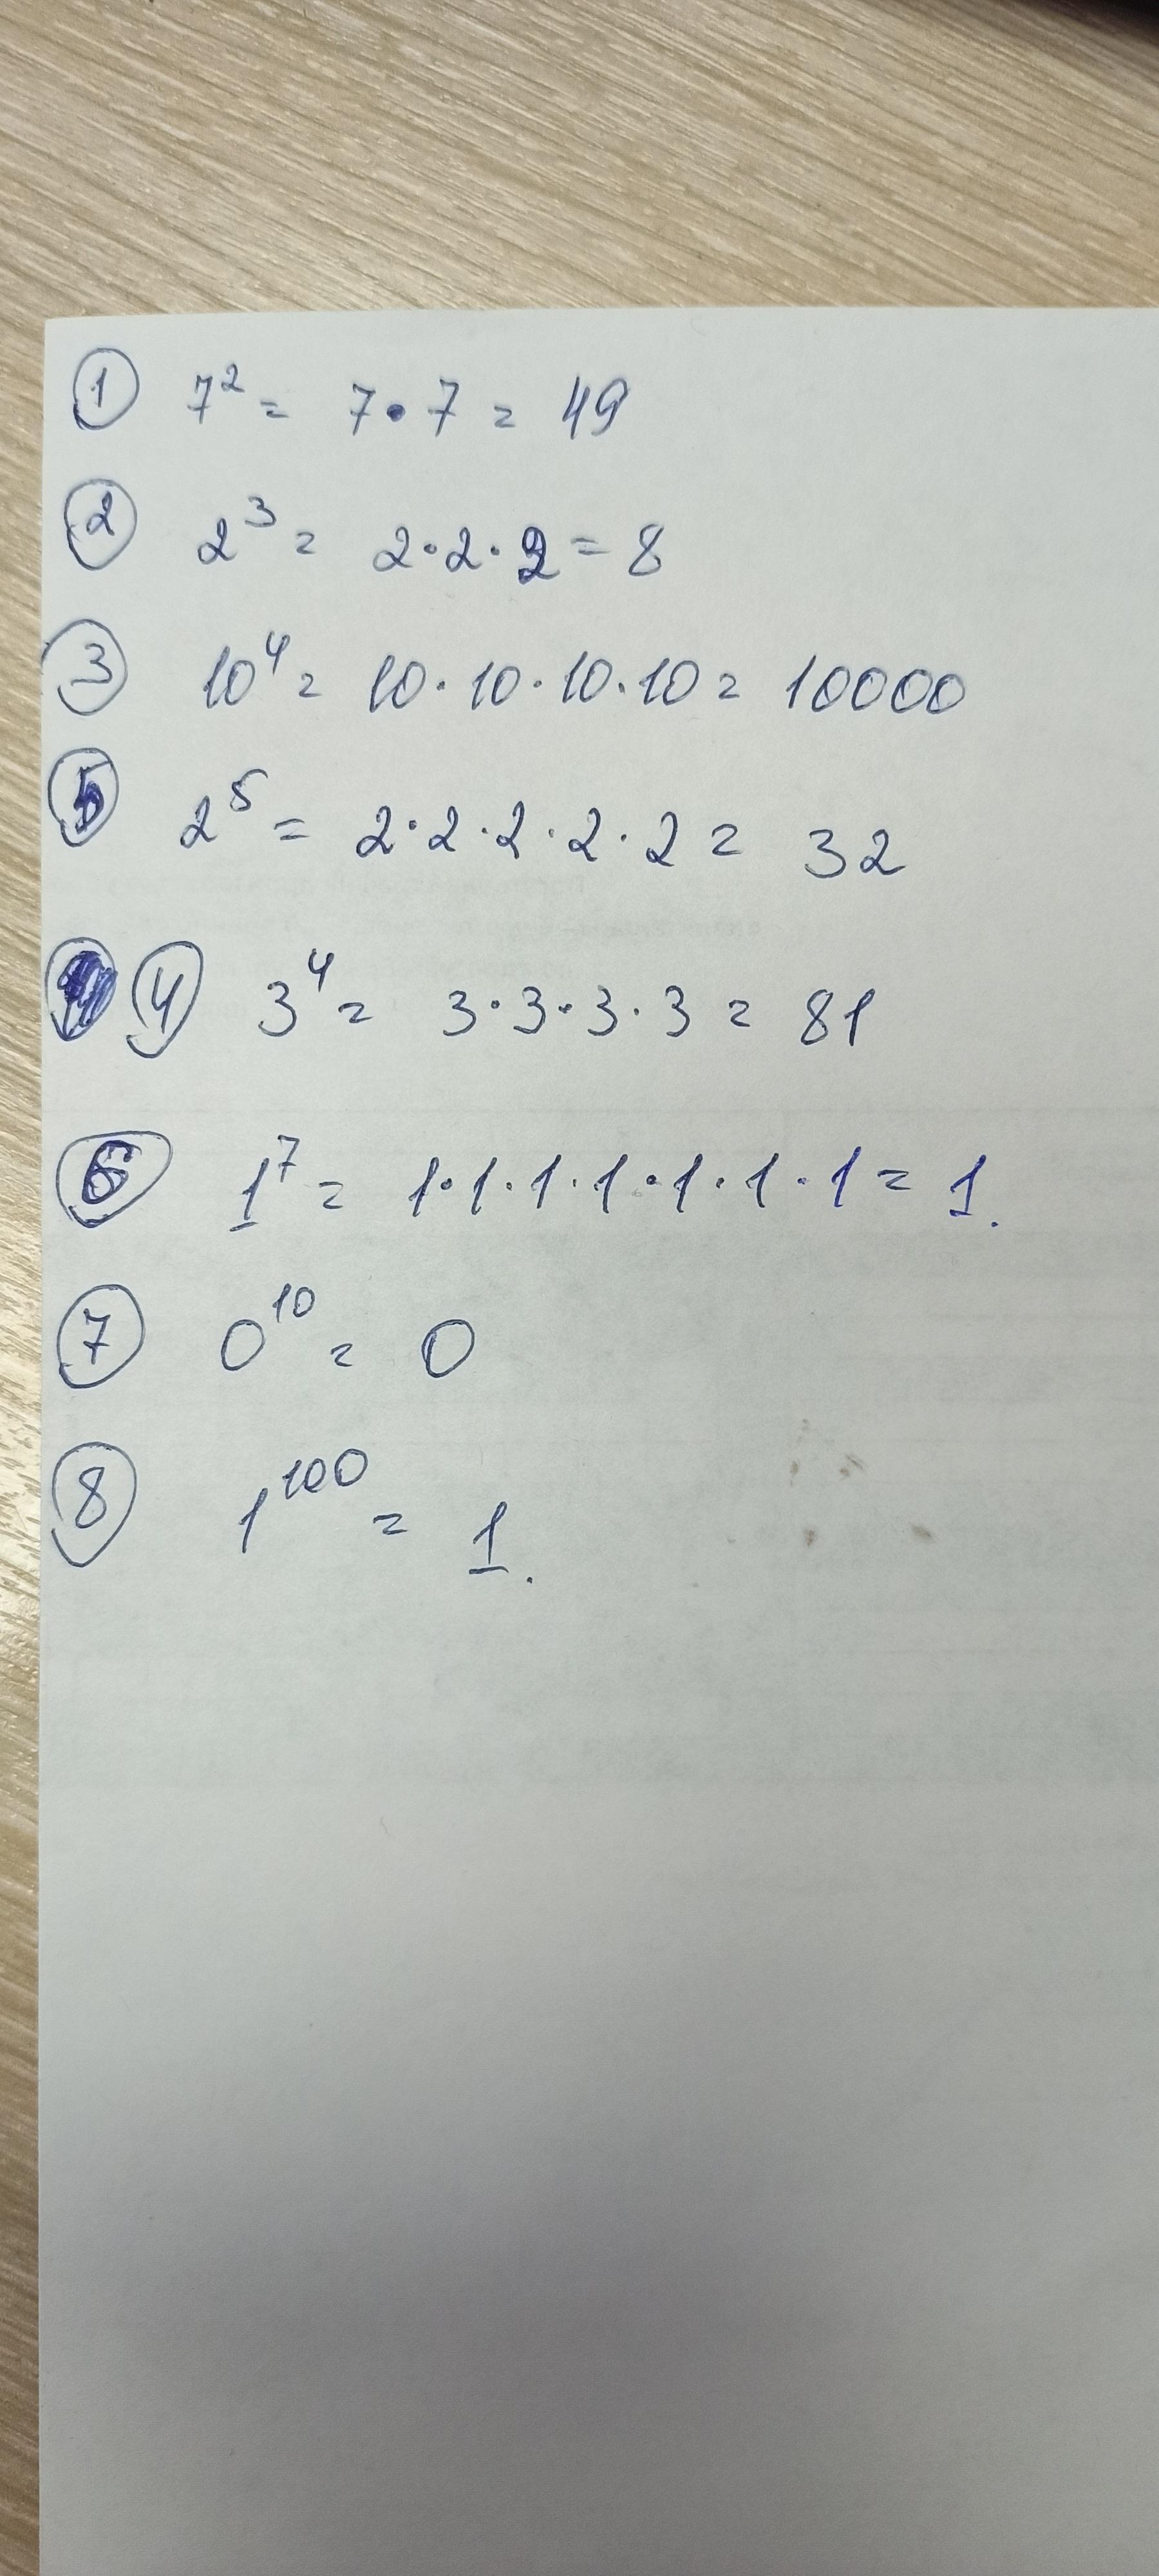 ① 7² = 7·7 = 49
② 2³ = 2·2·2 = 8
③ 10⁴ = 10·10·10·10 = 10000
⑤ 2⁵ = 2·2·2·2·2 = 32
④ 3⁴ = 3·3·3·3 = 81
⑥ 1⁷ = 1·1·1·1·1·1·1 = 1.
⑦ 0¹⁰ = 0
⑧ 1¹⁰⁰ = 1.